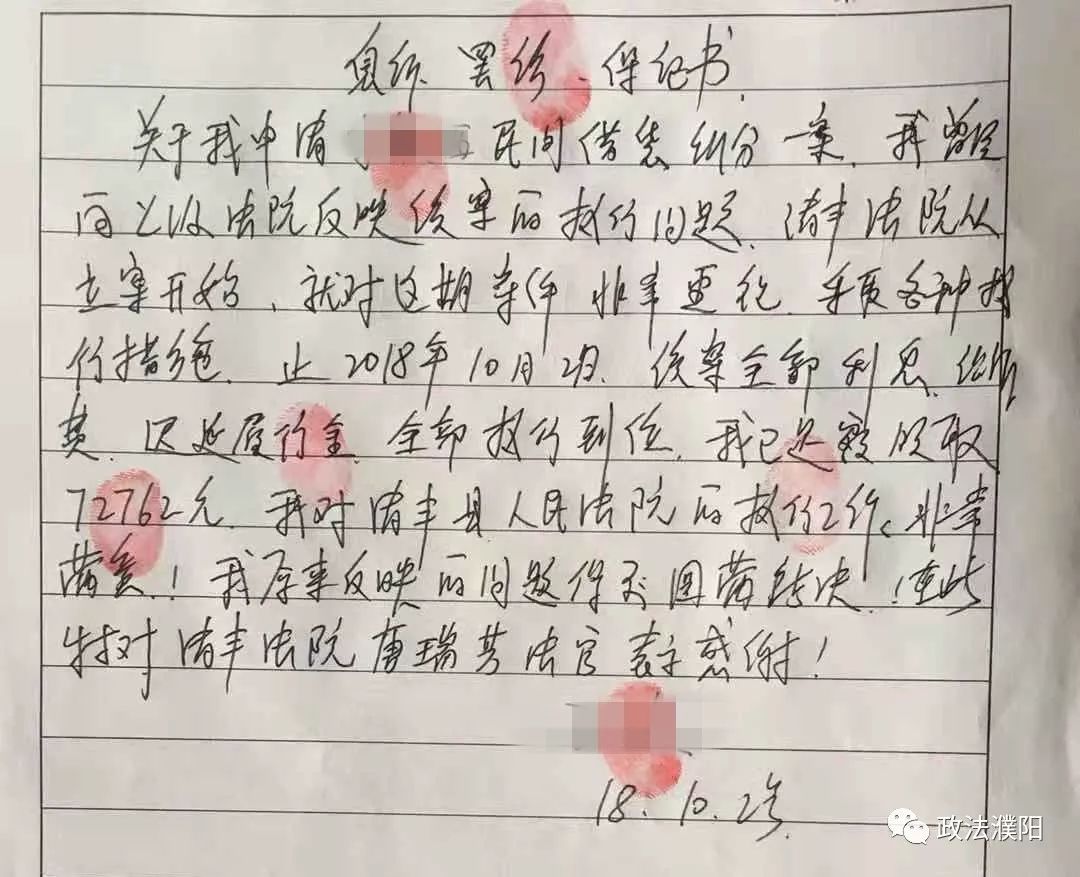 息诉、罢访、保证书
关于我申请 民间借贷纠纷一案，我曾经
向上级法院反映该案的执行问题，清丰法院从
立案开始，就对这期案件非常重视，采取各种执
行措施。止2018年10月2号，该案全部利息、
费、迟延履行金，全部执行到位，我已足额领取
72762元。我对清丰县人民法院的执行工作、非常
满意！我原来反映的问题得到圆满解决！在此
特对清丰法院唐瑞芳法官表示感谢！
18.10.2号.
政法濮阳